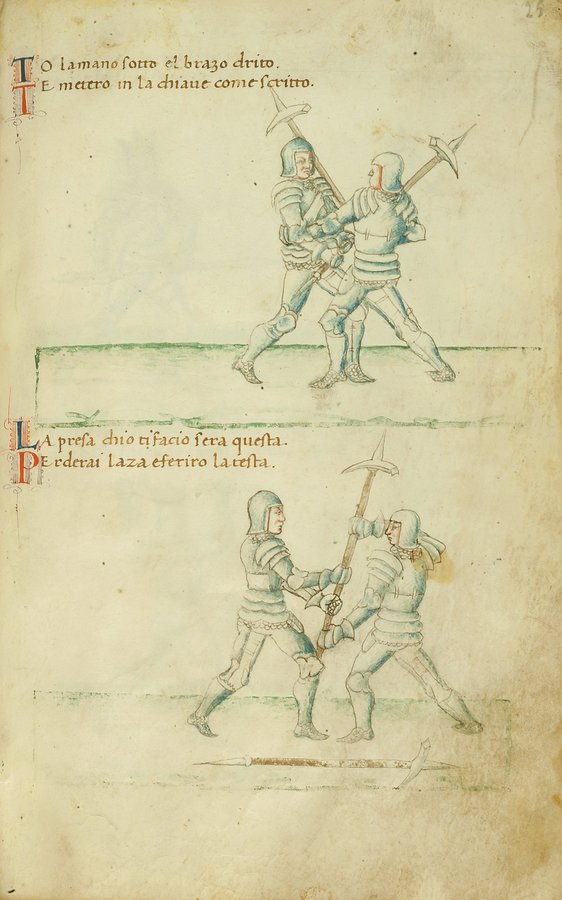 25
TO lamano sotto el brazo drito.
E metero in la chiaue come scritto.
LA presa chio ti facio sera questa.
PErderai laza e feriro la testa.